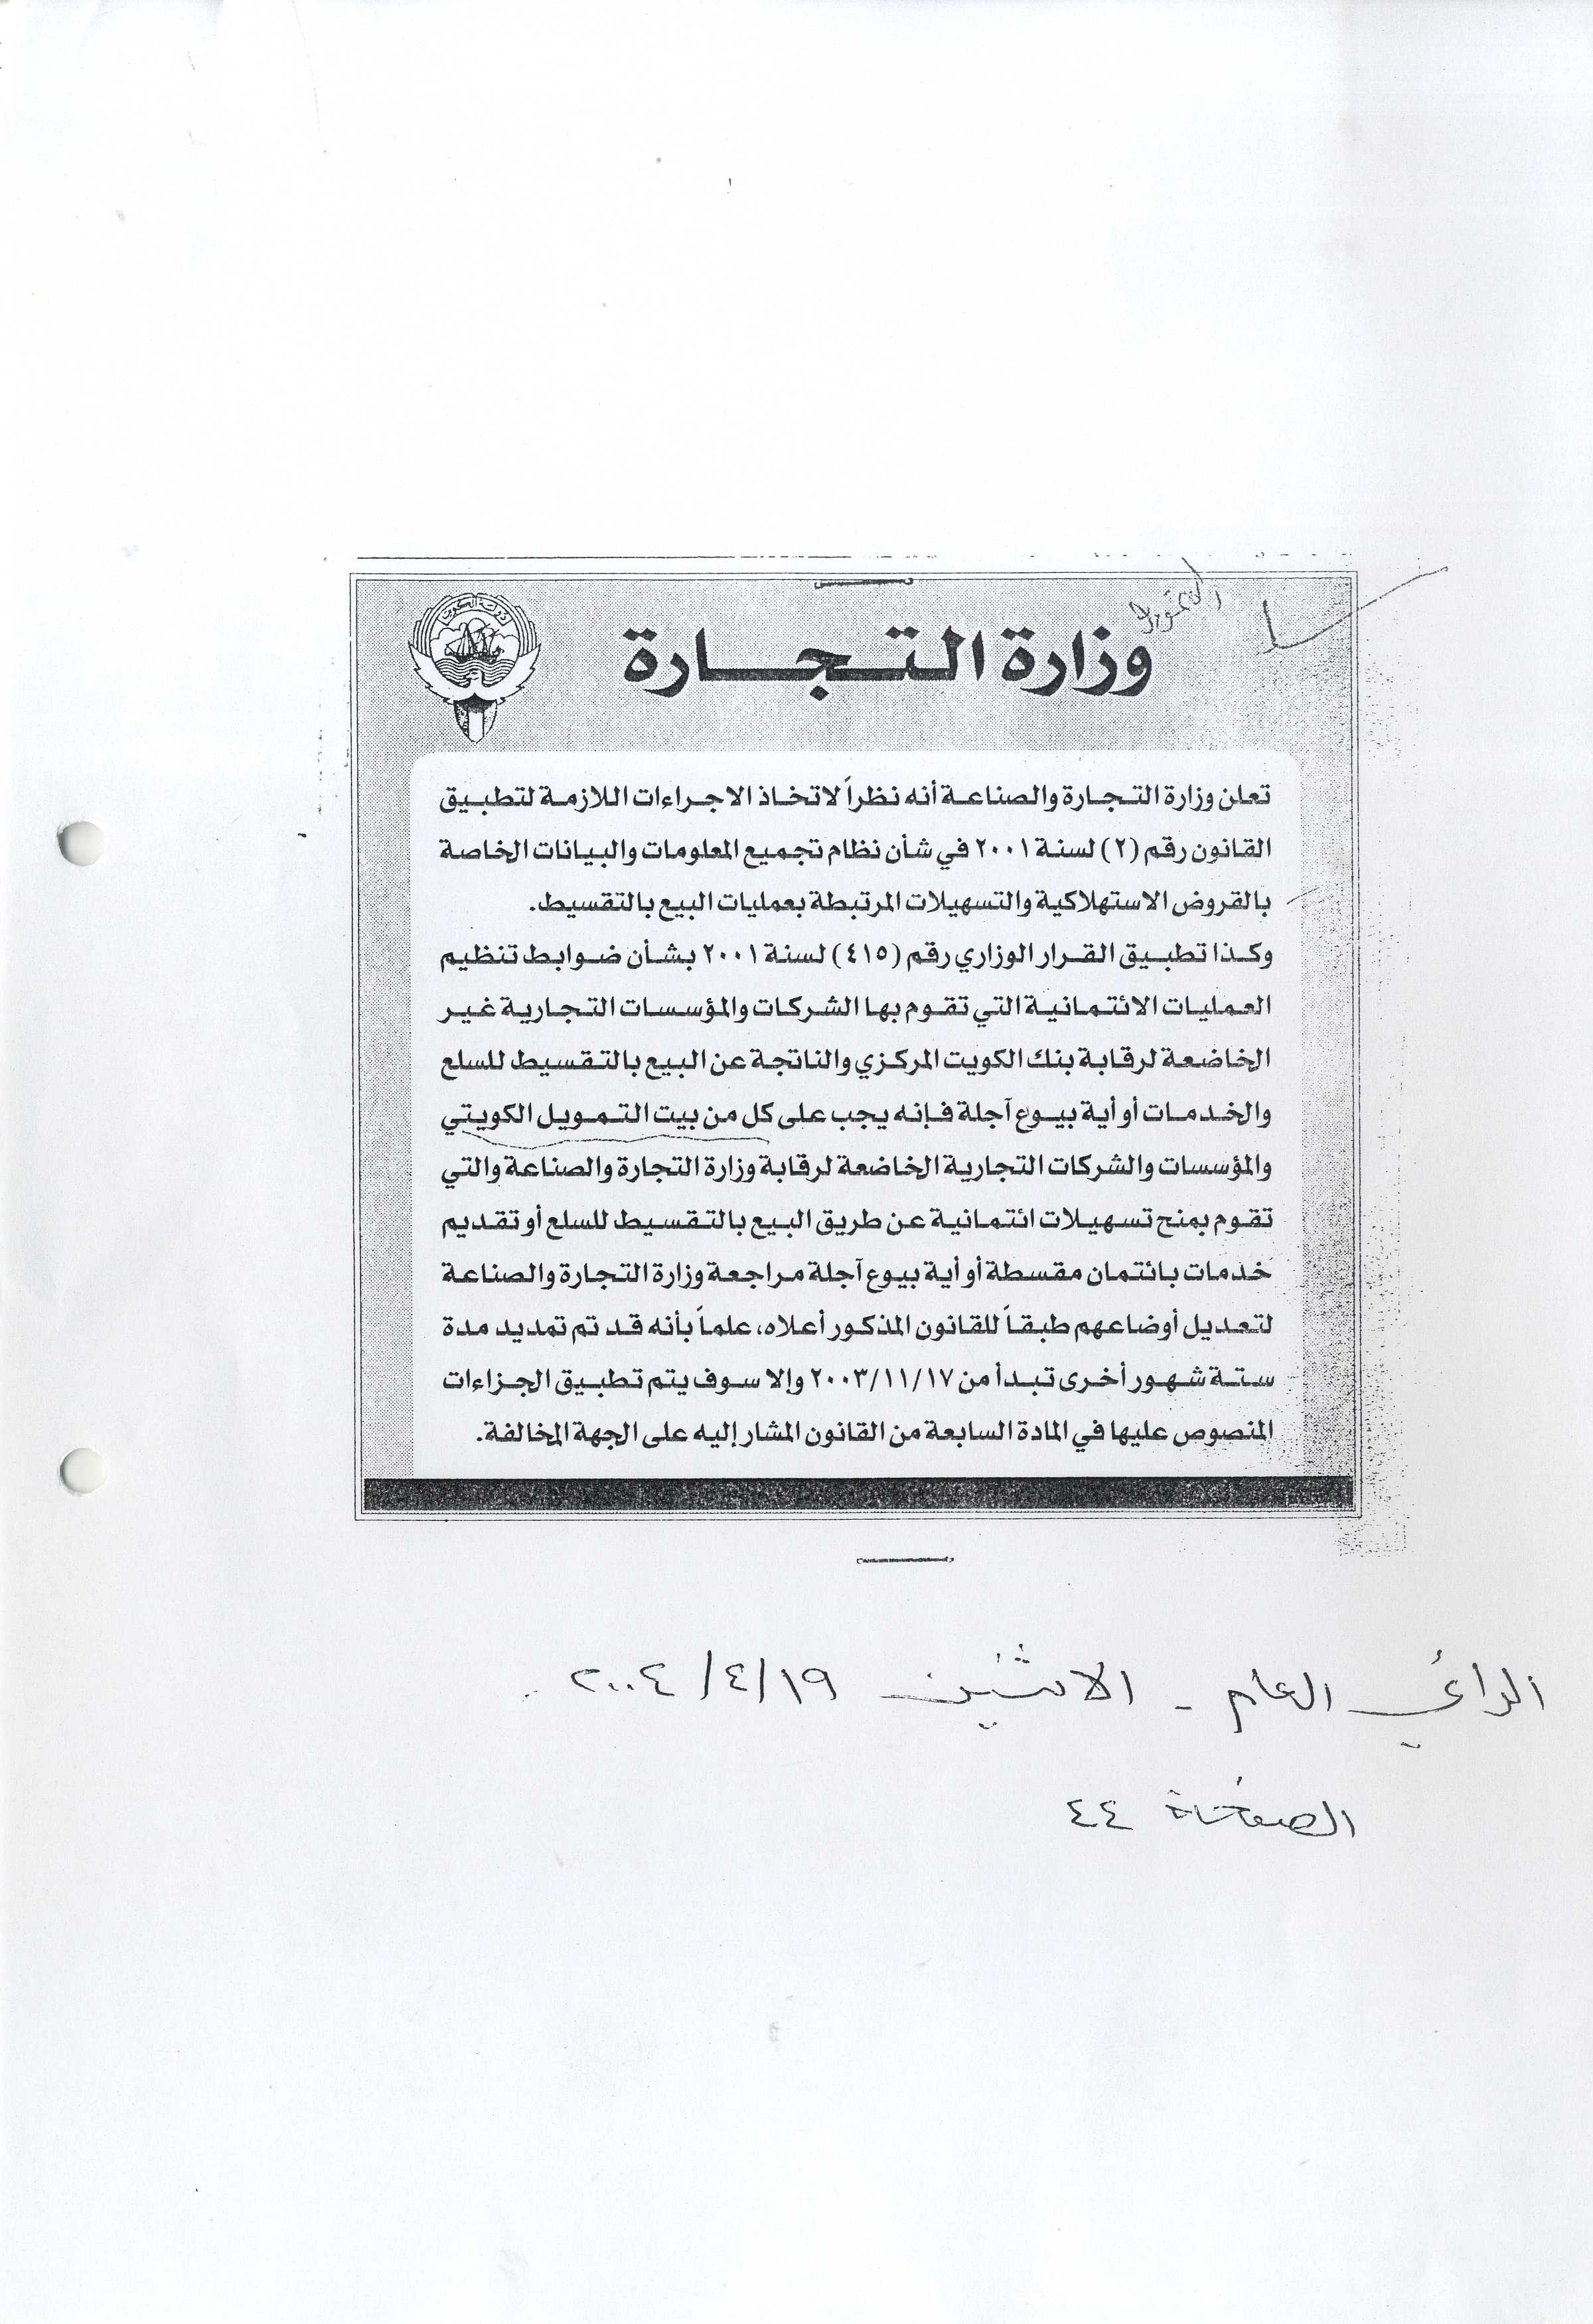 وزارة التجارة
تعلن وزارة التجارة والصناعة أنه نظراً لاتخاذ الاجراءات اللازمة لتطبيق
القانون رقم (٢) لسنة ٢٠٠١ في شأن نظام تجميع المعلومات والبيانات الخاصة
بالقروض الاستهلاكية والتسهيلات المرتبطة بعمليات البيع بالتقسيط.
وكذا تطبيق القرار الوزاري رقم (٤١٥) لسنة ٢٠٠١ بشأن ضوابط تنظيم
العمليات الائتمانية التي تقوم بها الشركات والمؤسسات التجارية غير
الخاضعة لرقابة بنك الكويت المركزي والناتجة عن البيع بالتقسيط للسلع
والخدمات أو أية بيوع آجلة فإنه يجب على كل من بيت التمويل الكويتي
والمؤسسات والشركات التجارية الخاضعة لرقابة وزارة التجارة والصناعة والتي
تقوم بمنح تسهيلات ائتمانية عن طريق البيع بالتقسيط للسلع أو تقديم
خدمات بائتمان مقسطة أو أية بيوع آجلة مراجعة وزارة التجارة والصناعة
لتعديل أوضاعهم طبقاً للقانون المذكور أعلاه، علماً بأنه قد تم تمديد مدة
ستة شهور أخرى تبدأ من ٢٠٠٣/١١/١٧ وإلا سوف يتم تطبيق الجزاءات
المنصوص عليها في المادة السابعة من القانون المشار إليه على الجهة المخالفة.
الرأي العام - الاثنين ٢٠٠٤/٤/١٩
الصفحة ٤٤